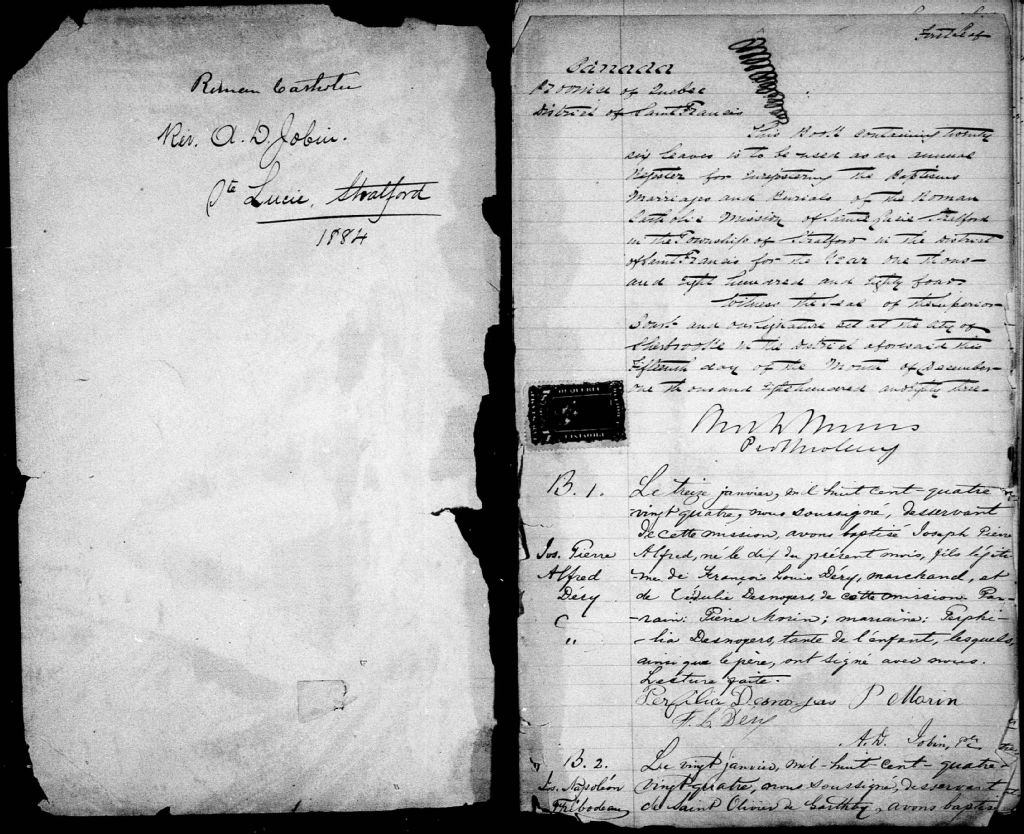 Roman Catholic
Rev. A. D. Jobin.
Ste Lucie, Stratford
1884
First Leaf
Canada
Province of Quebec
District of Saint Francis
This Book containing twenty
six leaves is to be used as an annual
Register for Enregistering the Baptisms
Marriages and Burials of the Roman
Catholic Mission of Sainte Lucie Stratford
in the Township of Stratford in the district
of Saint Francis for the Year one thous-
and Eight hundred and Eighty four
Witness the Seal of the Superior
Court and our signature set at the City of
Sherbrooke in the district aforesaid this
Fifteenth day of the Month of December
one thousand Eight hundred and Eighty three
B. 1.
Jos. Pierre
Alfred
Déry
C
"
Le treize janvier, mil huit cent-quatre
vingt quatre, nous soussigné, desservant
de cette mission, avons baptisé Joseph Pierre
Alfred, né le dix du présent mois, fils légiti-
me de François Louis Déry, marchand, et
de Cédulie Desnoyers, de cette mission Par-
rain: Pierre Morin; marraine: Perphi-
lia Desnoyers, tante de l'enfant, lesquels,
ainsi que le père, ont signé avec nous.
Lecture faite.
Perfilia Desnoyers P Morin
F. L. Dery
A. D. Jobin, ptre
B. 2.
Js. Napoléon
Thibodeau
Le vingt janvier, mil-huit-cent-quatre-
vingt quatre, nous soussigné, desservant
de Saint Olivier de Garthby, avons baptisé